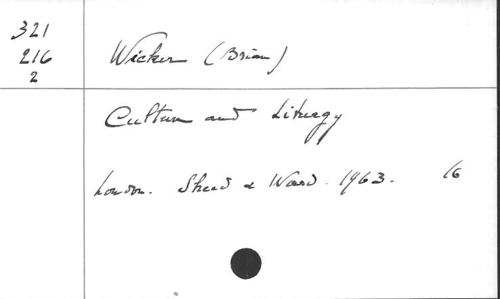 321
216
2
Wicker (Brian)
Culture and Liturgy
London. Sheed & Ward. 1963. 16